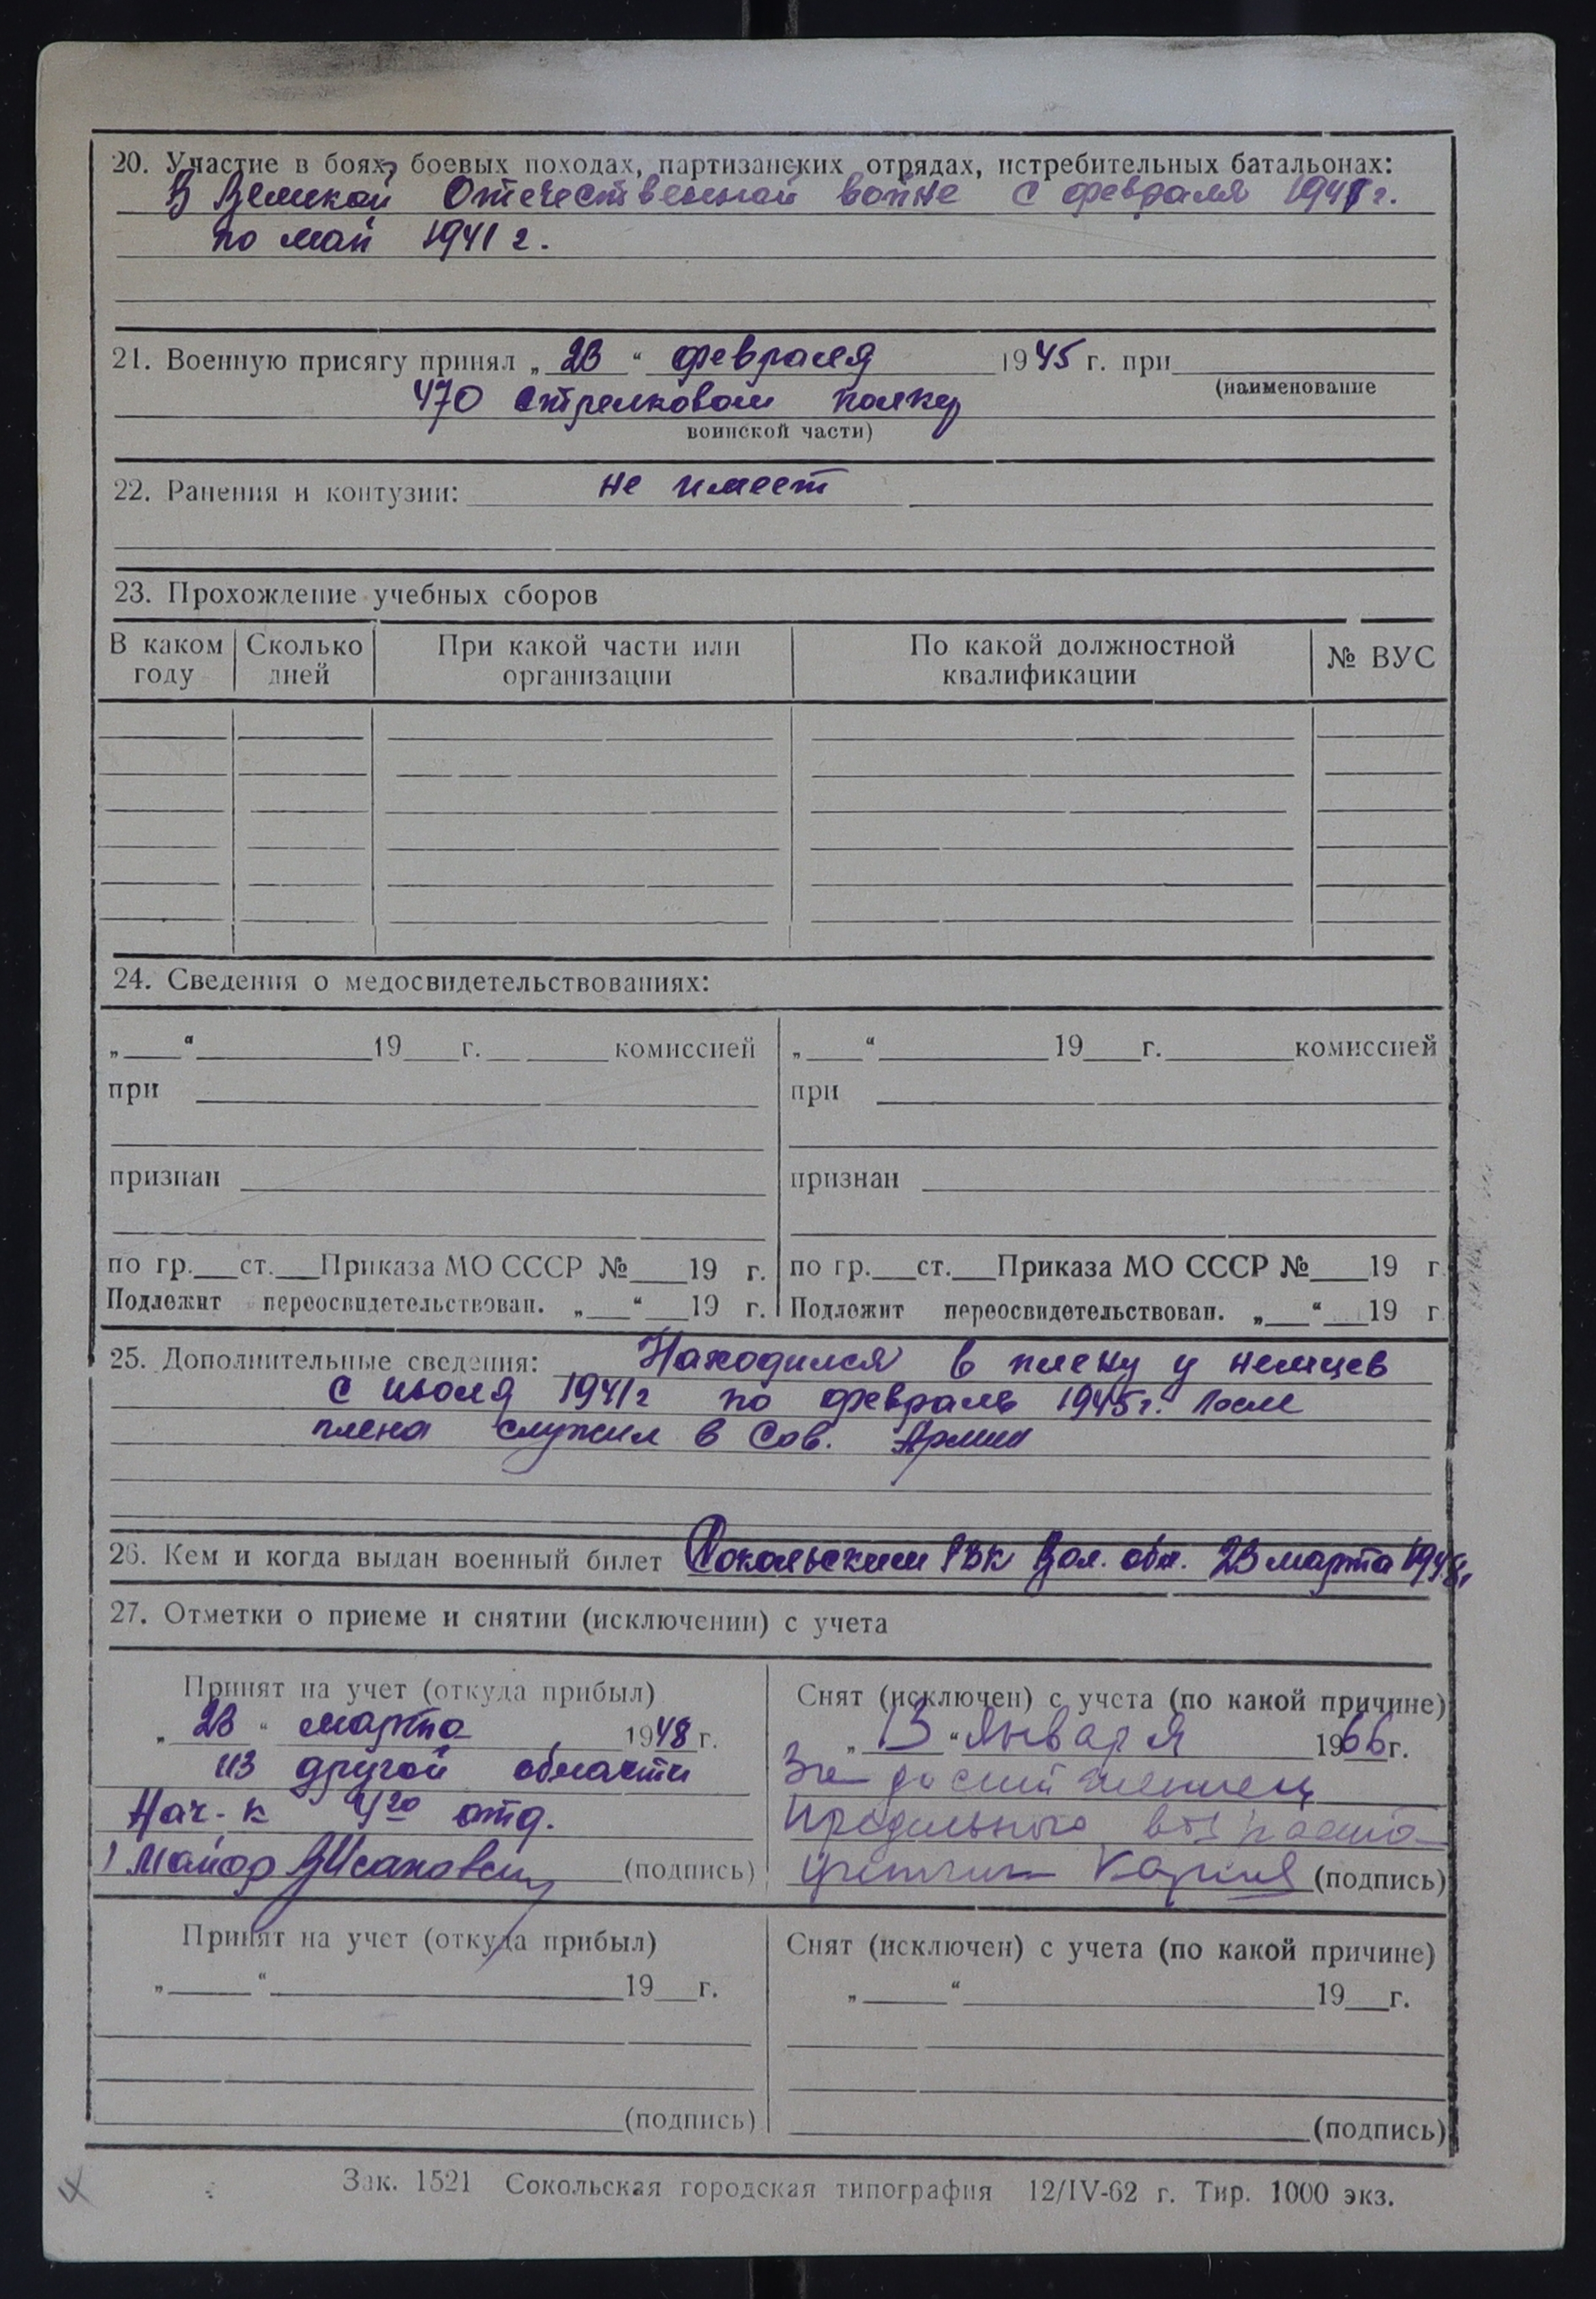 20. Участие в боях, боевых походах, партизанских отрядах, истребительных батальонах:
В Великой Отечественной войне с февраля 1941 г.
по май 1941 г.
21. Военную присягу принял „23“ февраля 1945 г. при
(наименование
470 стрелковом полку
воинской части)
22. Ранения и контузии: не имеет
23. Прохождение учебных сборов
В каком году Сколько дней При какой части или организации По какой должностной квалификации № ВУС
24. Сведения о медосвидетельствованиях:
„ “ 19 г. комиссией „ “ 19 г. комиссией
при при
признан признан
по гр. ст. Приказа МО СССР № 19 г. по гр. ст. Приказа МО СССР № 19 г
Подлежит переосвидетельствован. „ “ 19 г. Подлежит переосвидетельствован. „ “ 19 г
25. Дополнительные сведения: Находился в плену у немцев
с июля 1941г по февраль 1945г. После
плена служил в Сов. Армии
26. Кем и когда выдан военный билет Сокольским РВК Вол. обл. 23 марта 1948г.
27. Отметки о приеме и снятии (исключении) с учета
Принят на учет (откуда прибыл)
„23“ марта 1948 г.
из другой области
Нач-к 4го отд.
майор (подпись)
Снят (исключен) с учета (по какой причине)
„13“ января 1966 г.
За достижением
предельного возраста
Карпов (подпись)
Принят на учет (откуда прибыл) Снят (исключен) с учета (по какой причине)
„ “ 19 г. „ “ 19 г.
(подпись) (подпись)
4
Зак. 1521 Сокольская городская типография 12/IV-62 г. Тир. 1000 экз.